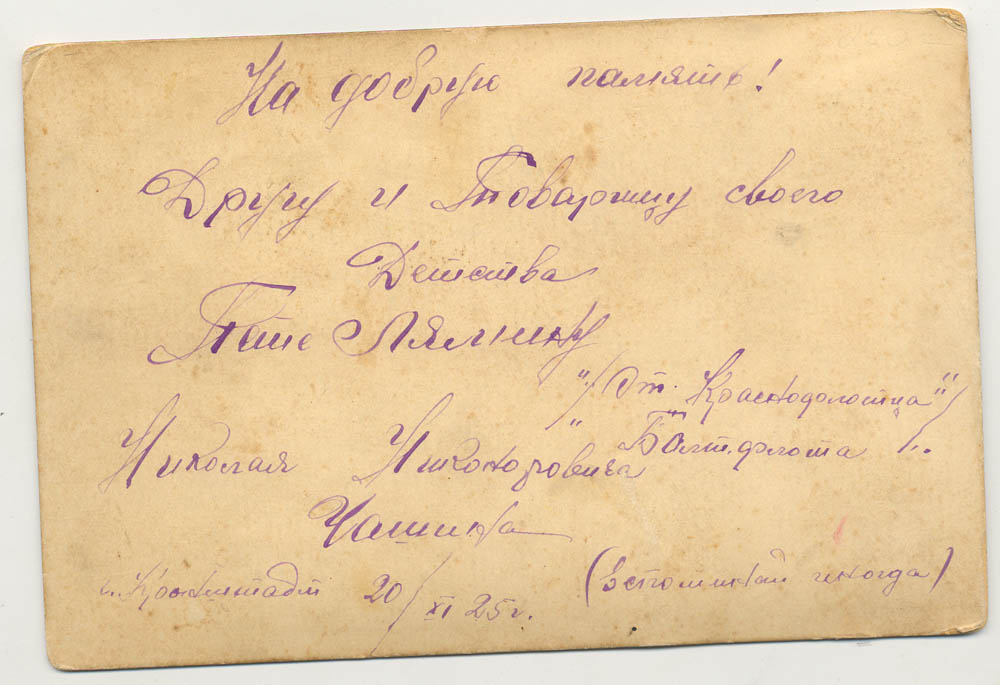 На добрую память!
Другу и Товарищу своего
Детства
Паше Лялину
"/От. Краснофлотца"/
" Балт.флота "/..
Николая Никоноровича
Чашина
г. Кронштадт 20/XI 25г.
(вспоминай иногда)